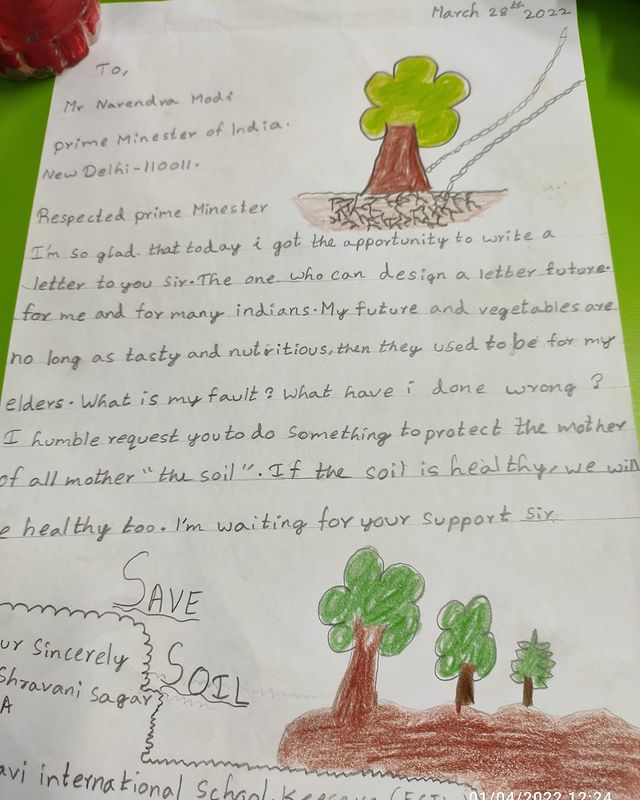 March 28th 2022
To,
Mr Narendra Modi
prime Minester of India.
New Delhi-110011.
Respected prime Minester
I'm so glad. that today i got the apportunity to write a
letter to you sir. The one who can design a letter future.
for me and for many indians. My future and vegetables are
no long as tasty and nutritious, then they used to be for my
elders. What is my fault? What have i done wrong?
I humble request you to do something to protect the mother
of all mother "the soil". If the soil is healthy, we will
e healthy too. I'm waiting for your support sir
SAVE
SOIL
ur Sincerely
Shravani Sagar
A
avi international School
01/04/2022 12:24